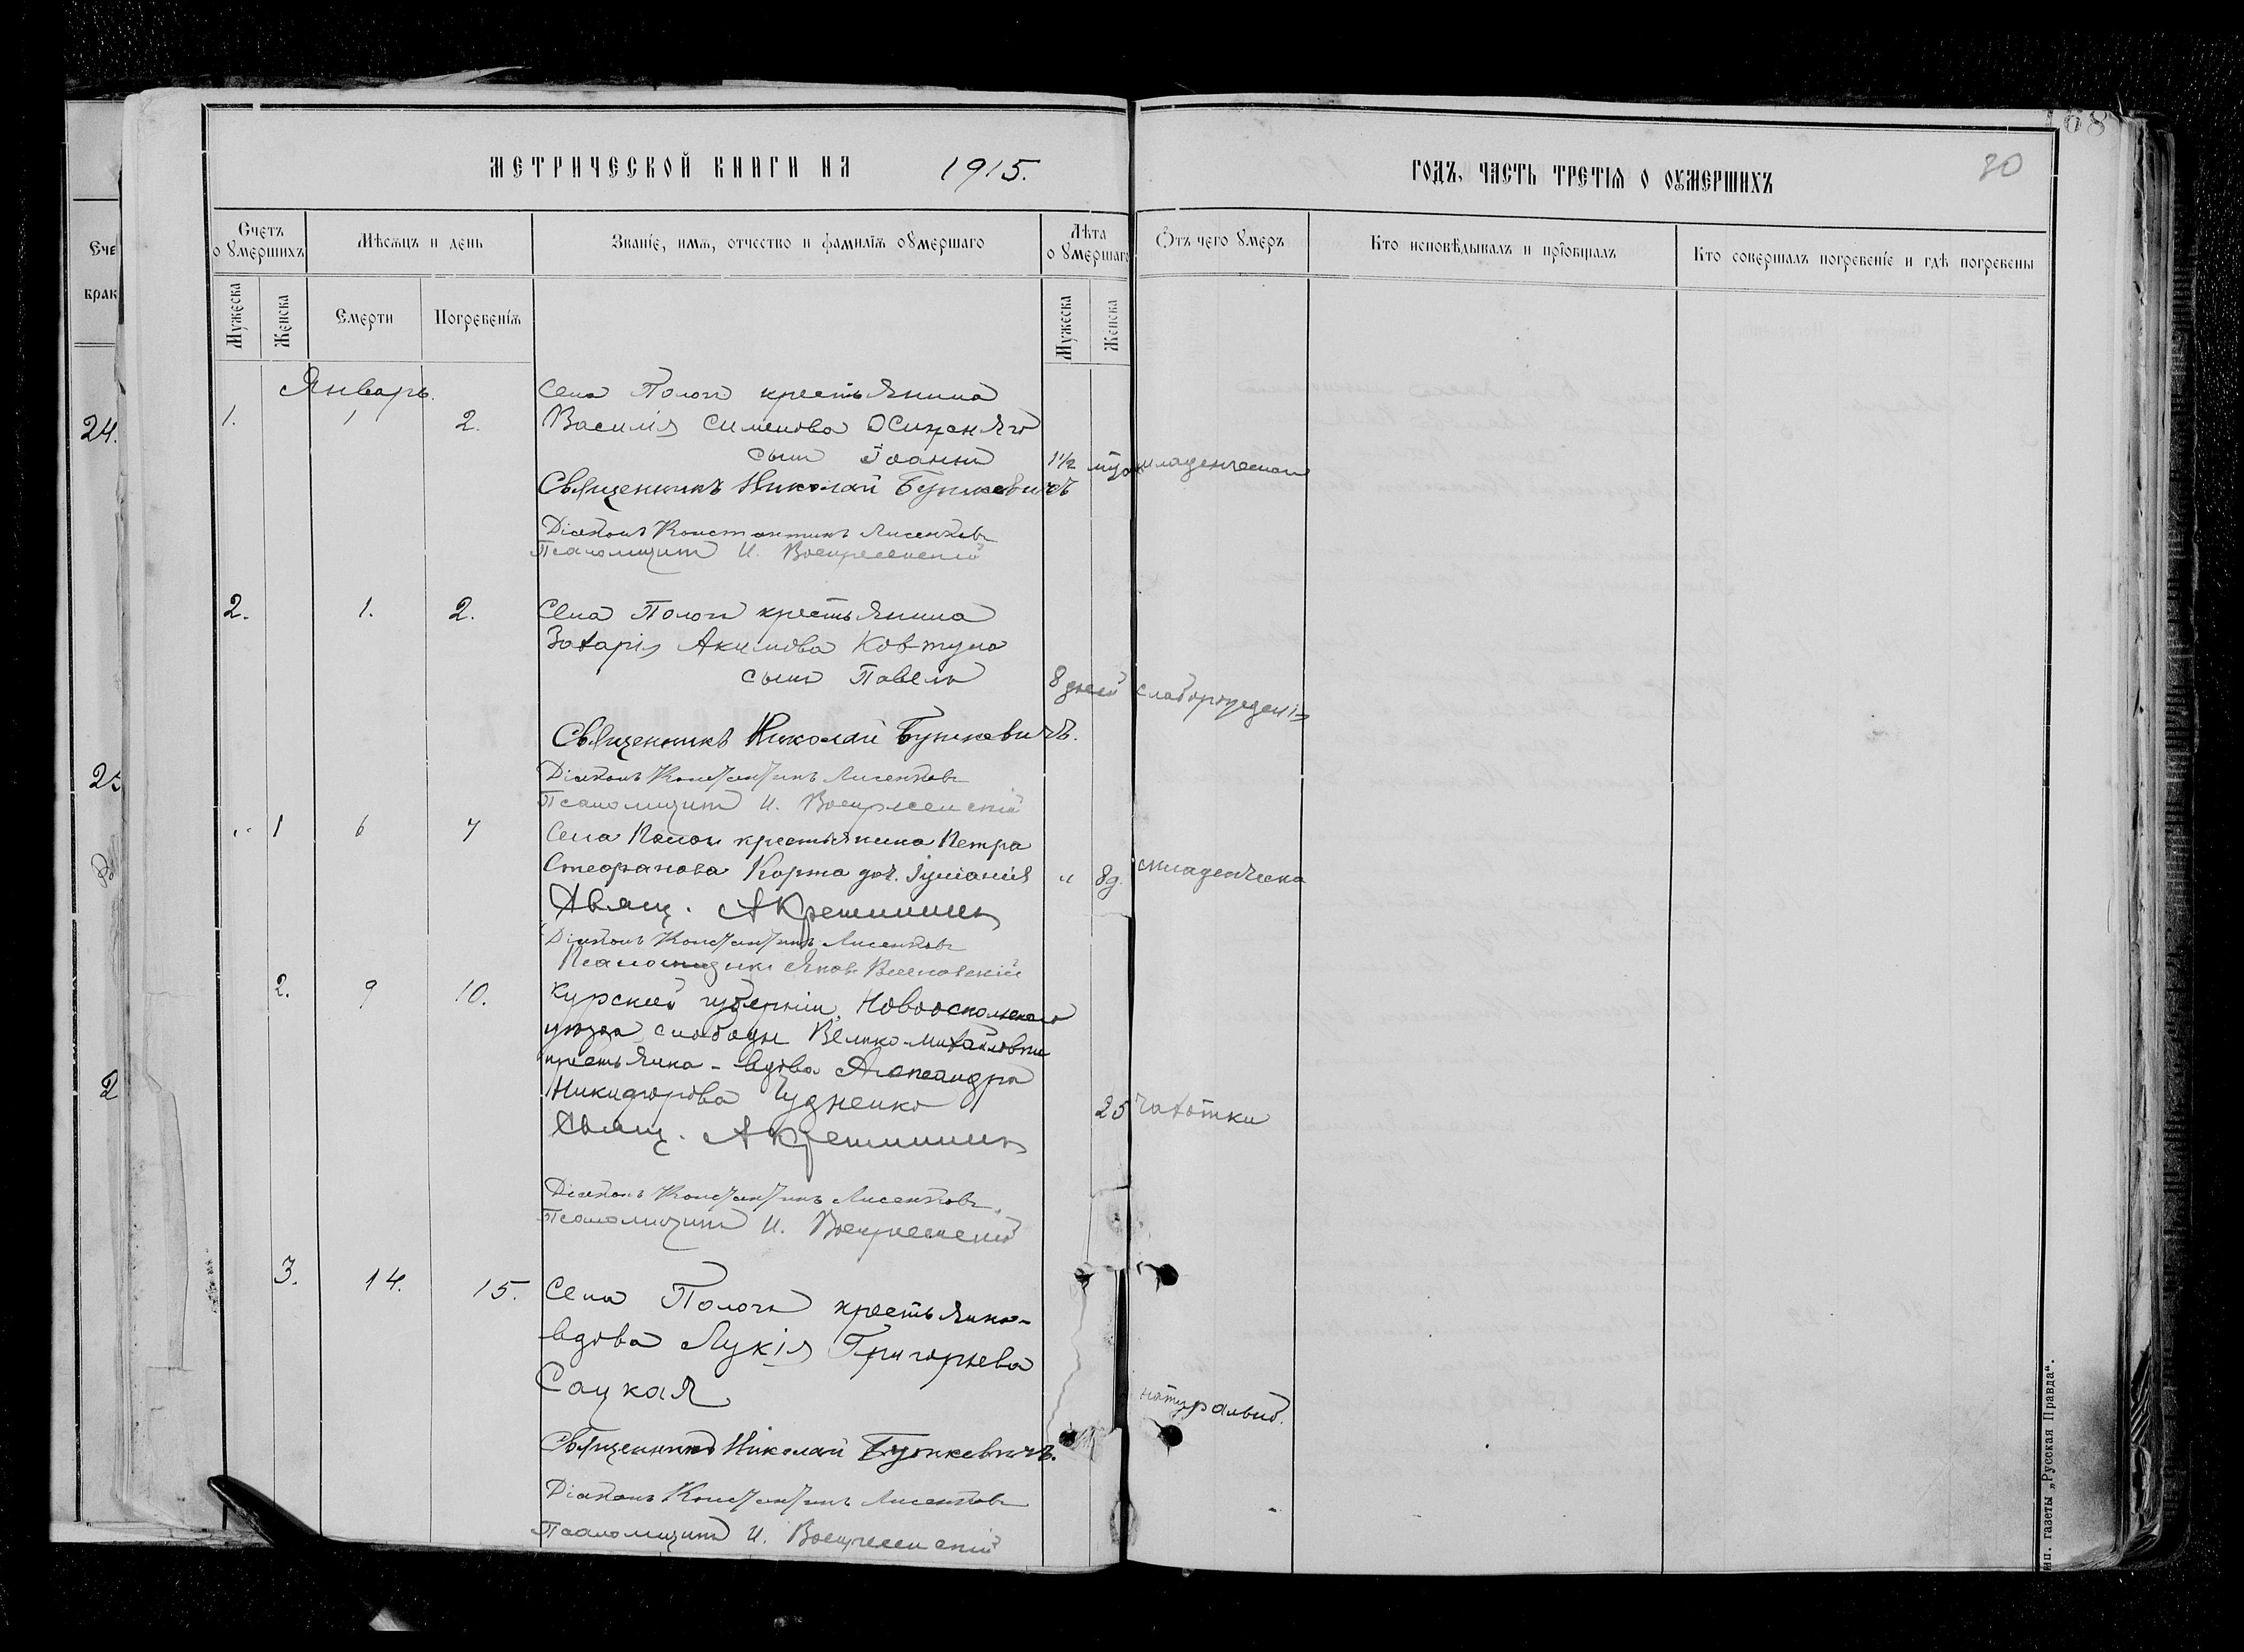 МЕТРИЧЕСКОЙ КНИГИ НА 1915.
ГОДЪ, ЧАСТЬ ТРЕТІЯ О ОУМЕРШИХЪ
80
168
Счетъ о умершихъ
Мѣсяцъ и день
Званіе, имя, отчество и фамилія оумершаго
Лѣта о умершаго
Отъ чего умеръ
Кто исповѣдывалъ и пріобщалъ
Кто совершалъ погребеніе и гдѣ погребены
Мужеска
Женска
Смерти
Погребенія
Мужеска
Женска
Январь.
Села Пологъ крестьянина
1. 1 2. Василія Сименова
сынъ Іоаннъ 1½ младенческой
Священникъ Николай Бушкевичъ
Діаконъ Константинъ Лисенковъ
Псаломщикъ И. Воскресенскій
2. 1. 2. Села Пологъ крестьянина
Захарія Акимова Ковтуна
сынъ Павелъ 8 дней слаборожденія
Священникъ Николай Бушкевичъ.
Діаконъ Константинъ Лисенковъ
Псаломщикъ И. Воскресенскій
„ 1 6 7 Села Пологъ крестьянина Петра
Стефанова Коржа доч. Іуліанія „ 8 д. младенческа
Свящ. А Крешининъ
Діаконъ Константинъ Лисенковъ
Псаломщикъ Яковъ
2. 9 10. Курской губерніи, Новооскольскаго
уѣзда слободы Велико-Михайловки
крестьянка - вдова Александра
Никифорова Чудненко 25 чахотки
Свящ. А Крешининъ
Діаконъ Константинъ Лисенковъ.
Псаломщикъ И. Воскресенскій
3. 14. 15. Села Пологъ крестьянка-
вдова Лукія Григорьева
Сацкая натуральной.
Священникъ Николай Бушкевичъ.
Діаконъ Константинъ Лисенковъ
Псаломщикъ И. Воскресенскій
Сче
брак
24.
25
2
тип. газеты „Русская Правда“.